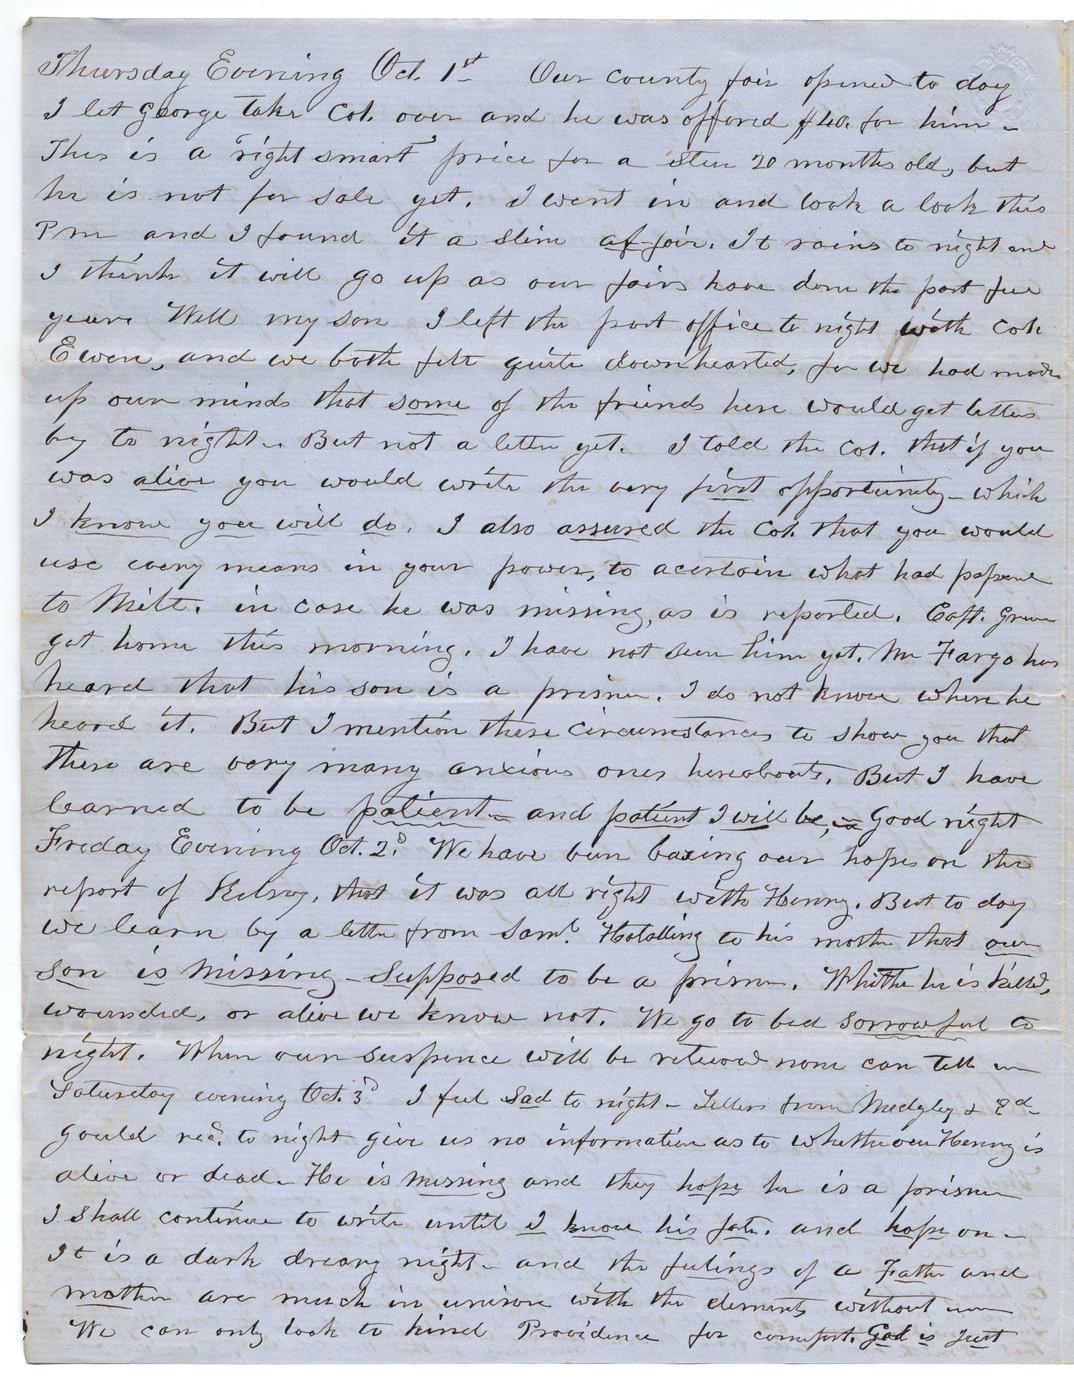 Thursday Evening Oct. 1st Our county fair opened to day
I let George take Col. over and he was offered $40. for him -
This is a "right smart" price for a steer 20 months old, but
he is not for sale yet. I went in and took a look this
P.m and I found it a slim af-fair. It rains to night and
I think it will go up as our fairs have done the past few
years Well my son I left the post office to night with Col.
Ewen, and we both felt quite downhearted, for we had made
up our minds that some of the friends here would get letters
by to night - But not a letter yet. I told the Col. that if you
was alive you would write the very first opportunity - which
I know you will do. I also assured the Col. that you would
use every means in your power, to acertain what had passed
to Milt. in case he was missing, as is reported. Capt. Green
got home this morning. I have not seen him yet. Mr Fargo has
heard that his son is a prisner. I do not know where he
heard it. But I mention these circumstances to show you that
there are very many anxious ones hereabouts. But I have
learned to be patient - and patient I will be, - Good night
Friday Evening Oct. 2d We have been baxing our hopes on the
report of Kelsey, that it was all right with Henny. But to day
we learn by a letter from Saml. Hotalling to his mother that our
son is missing - Supposed to be a prisner. Whither he is killed,
wounded, or alive we know not. We go to bed sorrowful to
night. When our suspence will be relieved none can tell -
Saturday evening Oct. 3d I feel Sad to night - Letters from Medgley & Ed-
Gould recd. to night give us no information as to whether our Henny is
alive or dead - He is missing and they hope he is a prisner
I shall continue to write until I know his fate. and hope on -
It is a dark dreary night - and the feelings of a Father and
mother are much in unison with the elements without -
We can only look to kind Providence for comfort. God is Just